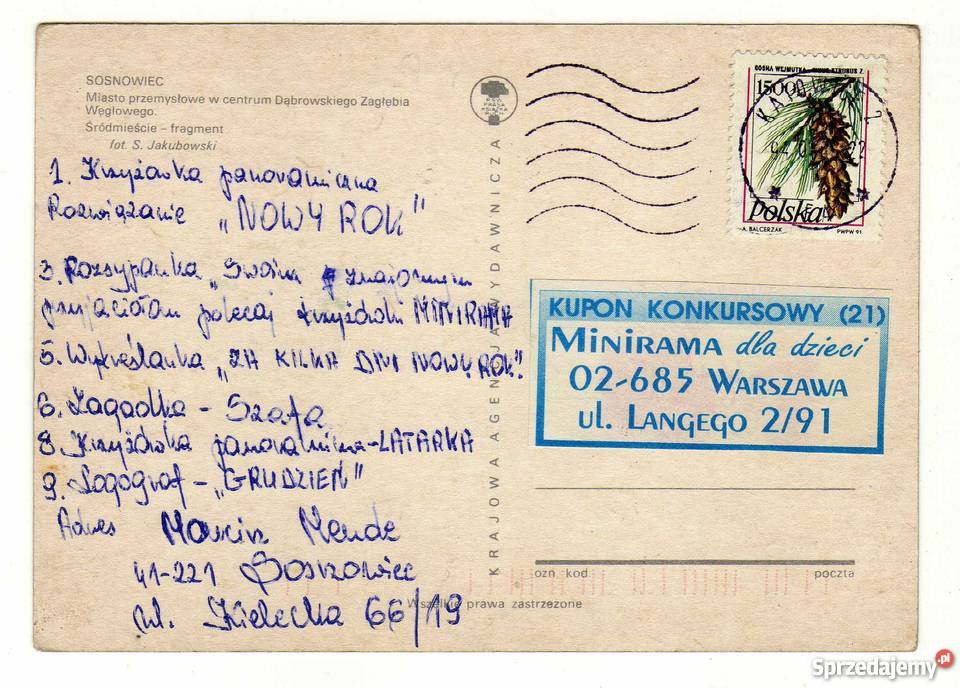 SOSNOWIEC
Miasto przemysłowe w centrum Dąbrowskiego Zagłębia
Węglowego.
Śródmieście – fragment
fot. S. Jakubowski
1. Krzyżówka panoramiczna
Rozwiązanie „NOWY ROK"
3. Rozsypanka „Swoim znajomym
przyjaciołom polecaj krzyżówki MINIRAMA
5. Wykreślanka „ZA KILKA DNI NOWY ROK".
6. Zagadka - Szafa
8. Krzyżówka panoramiczna - LATARKA
9. Logogryf - „GRUDZIEŃ"
Adres Marcin Mendz
41-221 Sosnowiec
ul. Kielecka 66/19
KRAJOWA AGENCJA WYDAWNICZA
RSW
PRASA
KSIĄŻKA
RUCH
SOSNA WEJMUTKA - PINUS STROBUS L.
15000
polska
A. BALCERZAK
PWPW 91.
KATOWICE 2
KUPON KONKURSOWY (21)
MINIRAMA dla dzieci
02-685 WARSZAWA
ul. LANGEGO 2/91
ozn. kod.
poczta
Wszelkie prawa zastrzeżone
Sprzedajemy.pl